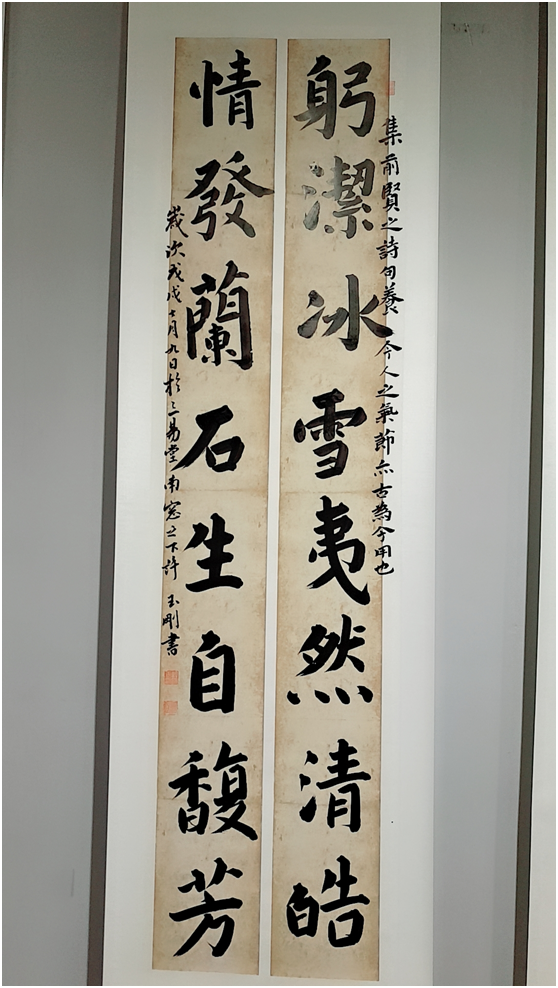 集前賢之詩句養今人之氣節亦古為今用也
躬潔冰雪夷然清皓
情發蘭石生自馥芳
歲次戊戌七月九日於三易堂南窗之下許玉剛書